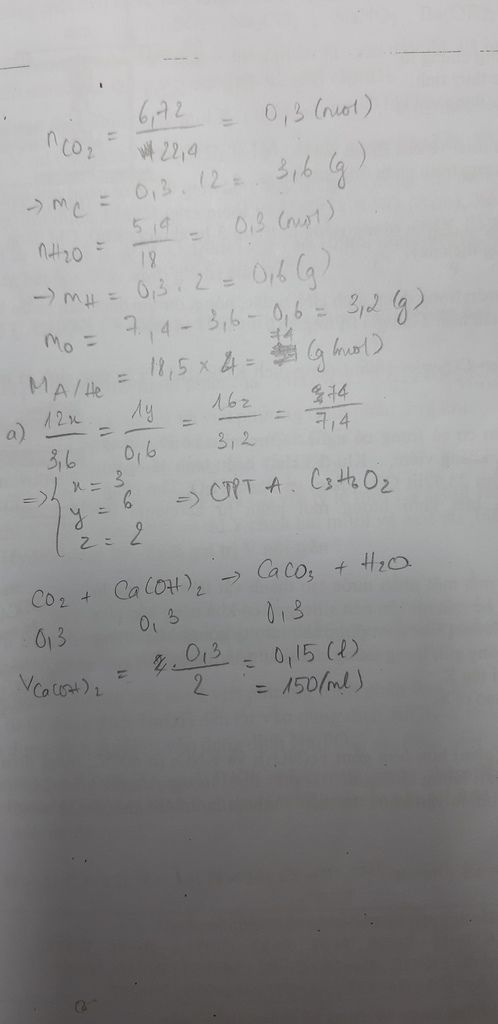 nCO2 = 6,72 / 22,4 = 0,3 (mol)
→ mC = 0,3 . 12 = 3,6 (g)
nH2O = 5,4 / 18 = 0,3 (mol)
→ mH = 0,3 . 2 = 0,6 (g)
mO = 7,4 - 3,6 - 0,6 = 3,2 (g)
MA/He = 18,5 x 4 = 74 (g/mol)
a) 12x / 3,6 = 1y / 0,6 = 16z / 3,2 = 74 / 7,4
=> { x = 3
y = 6 => CTPT A. C3H6O2
z = 2
CO2 + Ca(OH)2 → CaCO3 + H2O
0,3 0,3 0,3
VCa(OH)2 = 0,3 / 2 = 0,15 (l)
= 150 (ml)